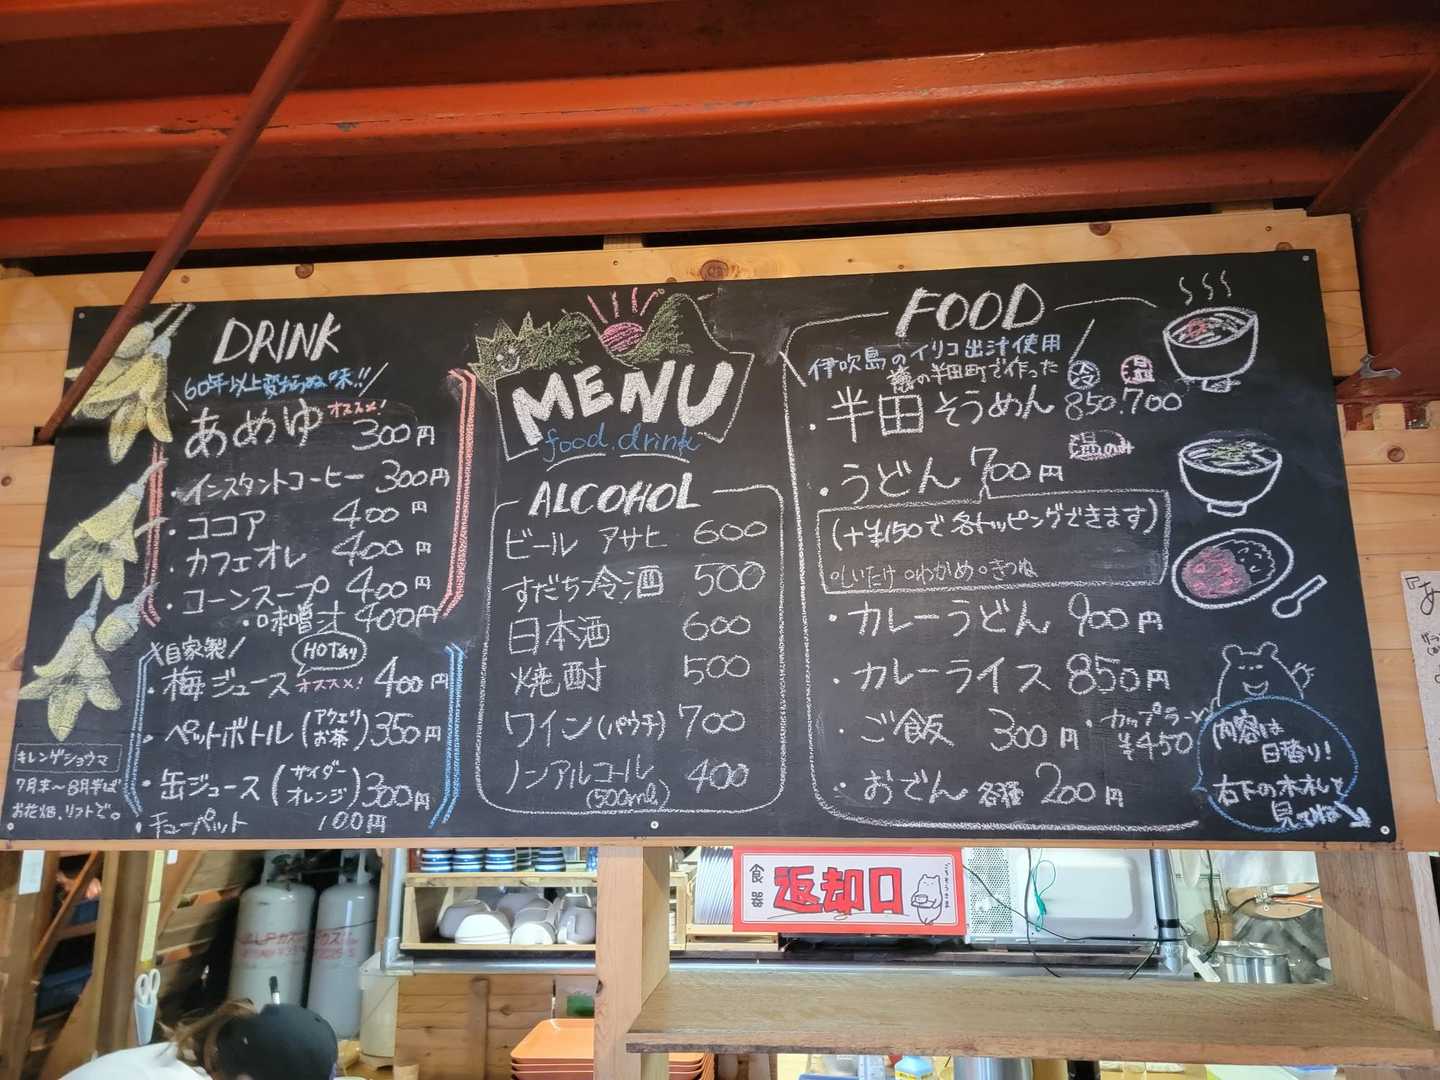 DRINK
60年以上変わらぬ味!!
あめゆ オススメ! 300円
・インスタントコーヒー 300円
・ココア 400円
カフェオレ 400円
・コーンスープ 400円
・味噌汁 400円
自家製
HOTあり
・梅ジュース オススメ! 400円
・ペットボトル(アクエリ お茶)350円
・缶ジュース(サイダー オレンジ)300円
・チューペット 100円
キレンゲショウマ
7月末〜8月半ば
お花畑、リフトで。
MENU
food.drink
ALCOHOL
ビール アサヒ 600
すだち冷酒 500
日本酒 600
焼酎 500
ワイン(パウチ) 700
ノンアルコール 400
(500ml)
FOOD
伊吹島のイリコ出汁使用
の半田町で作った
冷 温
・半田そうめん 850.700
温のみ
・うどん 700円
(+¥150で各トッピングできます)
○しいたけ ○わかめ ○きつね
・カレーうどん 900円
・カレーライス 850円
・ご飯 300円
・カップラーメン
¥450
・おでん 各種 200円
内容は
日替り!
右下の木札を
見てね
食器
返却口
ごちそうさま